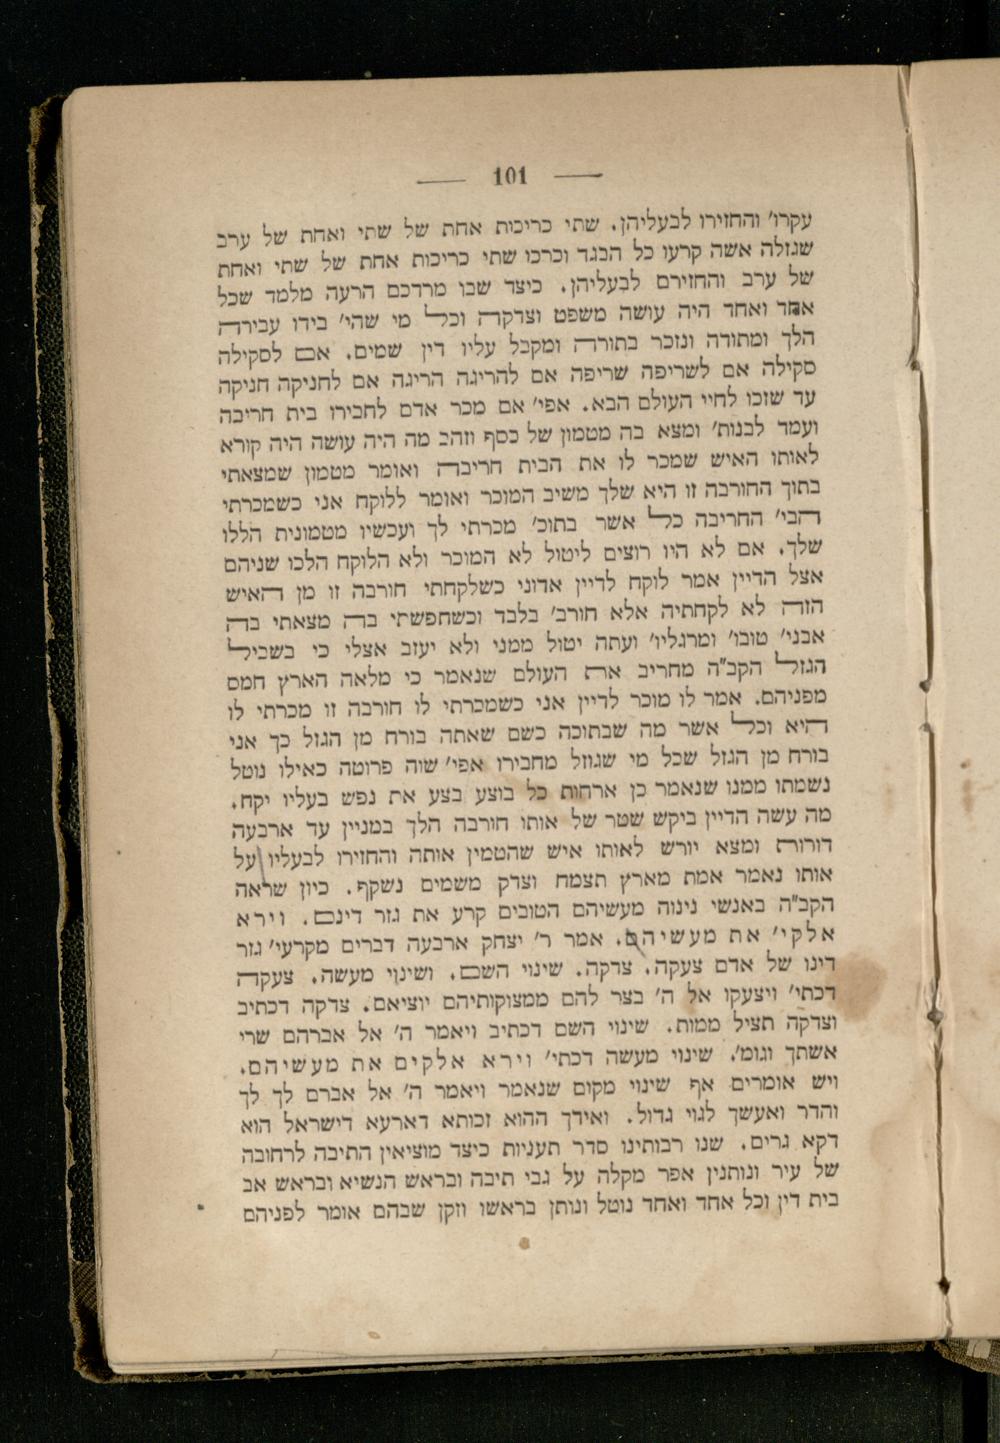 — 101 —
עקרו' והחזירו לבעליהן. שתי כריכות אחת של שתי ואחת של ערב
שגזלה אשה קרעו כל הבגד וכרכו שתי כריכות אחת של שתי ואחת
של ערב והחזירם לבעליהן. כיצד שבו מדרכם הרעה מלמד שכל
אחד ואחד היה עושה משפט וצדקה וכל מי שהי' בידו עבירה
הלך ומתודה ונזכר בתורה ומקבל עליו דין שמים. אם לסקילה
סקילה אם לשריפה שריפה אם להריגה הריגה אם לחניקה חניקה
עד שזכו לחיי העולם הבא. אפי' אם מכר אדם לחבירו בית חריבה
ועמד לבנות' ומצא בה מטמון של כסף וזהב מה היה עושה היה קורא
לאותו האיש שמכר לו את הבית חריבה ואומר מטמון שמצאתי
בתוך החורבה זו היא שלך משיב המוכר ואומר ללוקח אני כשמכרתי
הבי' החריבה כל אשר בתוכ' מכרתי לך ועכשיו מטמונית הללו
שלך. אם לא היו רוצים ליטול לא המוכר ולא הלוקח הלכו שניהם
אצל הדיין אמר לוקח לדיין אדוני כשלקחתי חורבה זו מן האיש
הזה לא לקחתיה אלא חורב' בלבד וכשחפשתי בה מצאתי בה
אבני' טובו' ומרגליו' ועתה יטול ממני ולא יעזב אצלי כי בשביל
הגזל הקב"ה מחריב את העולם שנאמר כי מלאה הארץ חמס
מפניהם. אמר לו מוכר לדיין אני כשמכרתי לו חורבה זו מכרתי לו
היא וכל אשר מה שבתוכה כשם שאתה בורח מן הגזל כך אני
בורח מן הגזל שכל מי שגוזל מחבירו אפי' שוה פרוטה כאילו נוטל
נשמתו ממנו שנאמר כן ארחות כל בוצע בצע את נפש בעליו יקח.
מה עשה הדיין ביקש שטר של אותו חורבה הלך במניין עד ארבעה
דורות ומצא יורש לאותו איש שהטמין אותה והחזירו לבעליו על
אותו נאמר אמת מארץ תצמח וצדק משמים נשקף. כיון שראה
הקב"ה באנשי נינוה מעשיהם הטובים קרע את גזר דינם. וירא
אלקי' את מעשיהם. אמר ר' יצחק ארבעה דברים מקרעי' גזר
דינו של אדם צעקה. צדקה. שינוי השם. ושינוי מעשה. צעקה
דכתי' ויצעקו אל ה' בצר להם ממצוקותיהם יוציאם. צדקה דכתיב
וצדקה תציל ממות. שינוי השם דכתיב ויאמר ה' אל אברהם שרי
אשתך וגומ'. שינוי מעשה דכתי' וירא אלקים את מעשיהם.
ויש אומרים אף שינוי מקום שנאמר ויאמר ה' אל אברם לך לך
והדר ואעשך לגוי גדול. ואידך ההוא זכותא דארעא דישראל הוא
דקא גרים. שנו רבותינו סדר תעניות כיצד מוציאין התיבה לרחובה
של עיר ונותנין אפר מקלה על גבי תיבה ובראש הנשיא ובראש אב
בית דין וכל אחד ואחד נוטל ונותן בראשו וזקן שבהם אומר לפניהם